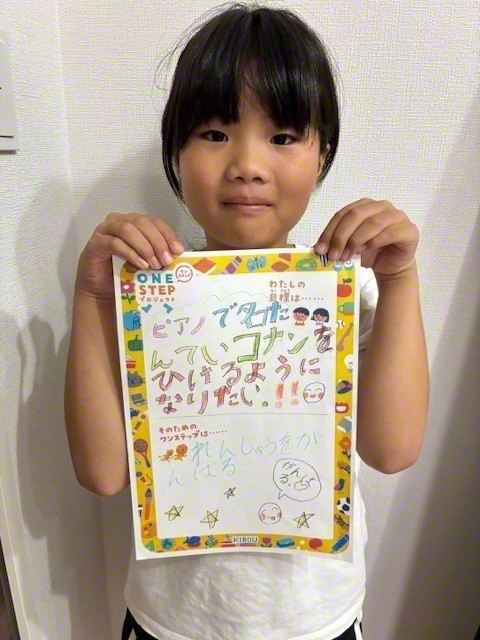 ONE
STEP
プロジェクト
ワンステップ
わたしの
目標は……
もくひょう
ピアノで名た
んていコナンを
ひけるように
なりたい。!!
そのための
ワンステップは……
れんしゅうをが
んばる
KIBOU